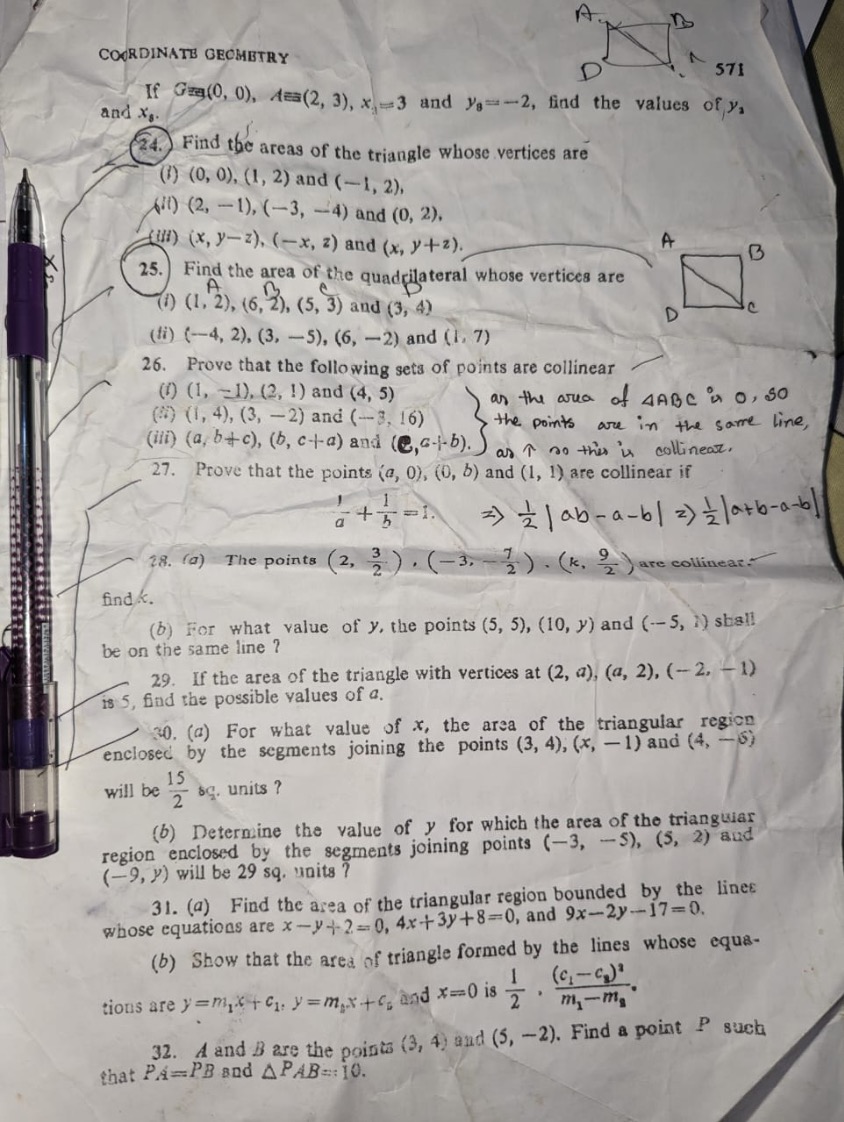 A B
D
COORDINATE GEOMETRY 571
If G≡(0, 0), A≡(2, 3), x₁=3 and y₃=−2, find the values of y₂
and x₃.
24. Find the areas of the triangle whose vertices are
(i) (0, 0), (1, 2) and (−1, 2),
(ii) (2, −1), (−3, −4) and (0, 2),
(iii) (x, y−z), (−x, z) and (x, y+z).
A B
D C
25. Find the area of the quadrilateral whose vertices are
A B C D
(i) (1, 2), (6, 2), (5, 3) and (3, 4)
(ii) (−4, 2), (3, −5), (6, −2) and (1, 7)
26. Prove that the following sets of points are collinear
(i) (1, −1), (2, 1) and (4, 5) as the area of △ABC is 0, so
(ii) (1, 4), (3, −2) and (−3, 16) the points are in the same line,
(iii) (a, b+c), (b, c+a) and (c, a+b). as ↑ so this is collinear.
27. Prove that the points (a, 0), (0, b) and (1, 1) are collinear if
1/a + 1/b = 1. ⇒ 1/2 |ab-a-b| ⇒ 1/2 |a+b-a-b|
28. (a) The points (2, 3/2), (−3, −7/2), (k, 9/2) are collinear.
find k.
(b) For what value of y, the points (5, 5), (10, y) and (−5, 1) shall
be on the same line ?
29. If the area of the triangle with vertices at (2, a), (a, 2), (−2, −1)
is 5, find the possible values of a.
30. (a) For what value of x, the area of the triangular region
enclosed by the segments joining the points (3, 4), (x, −1) and (4, −6)
will be 15/2 sq. units ?
(b) Determine the value of y for which the area of the triangular
region enclosed by the segments joining points (−3, −5), (5, 2) and
(−9, y) will be 29 sq. units ?
31. (a) Find the area of the triangular region bounded by the lines
whose equations are x−y+2=0, 4x+3y+8=0, and 9x−2y−17=0.
(b) Show that the area of triangle formed by the lines whose equa-
tions are y=m₁x+c₁, y=m₂x+c₂ and x=0 is 1/2 . (c₁−c₂)²/m₁−m₂.
32. A and B are the points (3, 4) and (5, −2). Find a point P such
that PA=PB and △PAB=10.